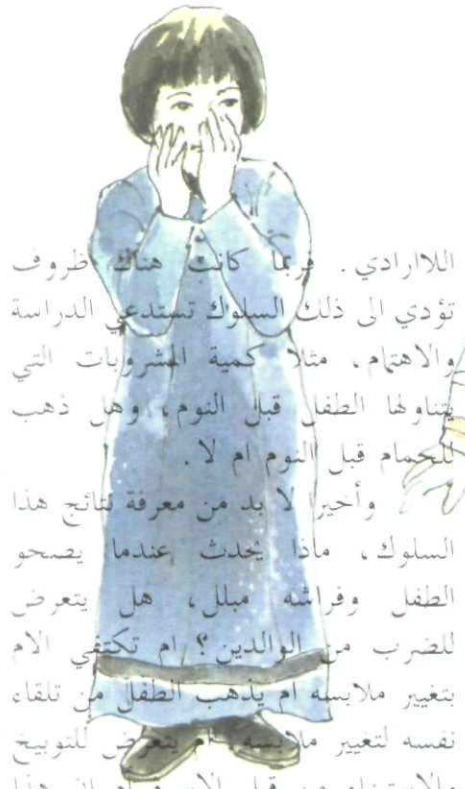 اللاارادي . فربما كانت هناك ظروف
تؤدي الى ذلك السلوك تستدعي الدراسة
والاهتمام ، مثلا كمية المشروبات التي
يتناولها الطفل قبل النوم ، وهل ذهب
للحمام قبل النوم ام لا .
وأخيرا لا بد من معرفة نتائج هذا
السلوك ، ماذا يحدث عندما يصحو
الطفل وفراشه مبلل ، هل يتعرض
للضرب من الوالدين ؟ ام تكتفي الام
بتغيير ملابسه ام يذهب الطفل من تلقاء
نفسه لتغيير ملابسه ، ام يتعرض للتوبيخ
هذا